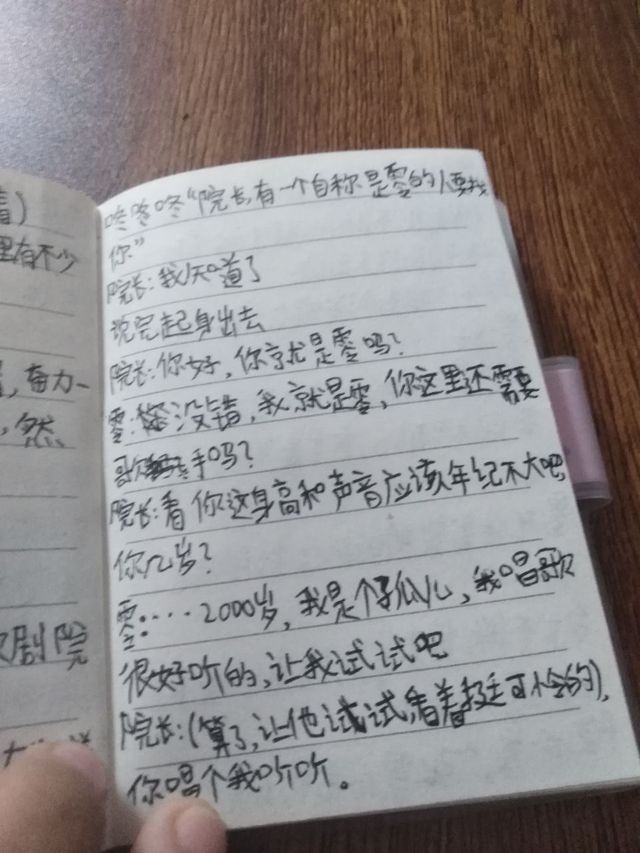 着)
里有不少
，奋力一
，然
剧院
咚咚咚“院长,有一个自称是零的人要找
你”
院长:我知道了
说完起身出去
院长:你好,你就是零吗?
零:没错,我就是零,你这里还需要
歌手吗?
院长:看你这身高和声音应该年纪不大吧
你几岁?
零:....2000岁,我是个孤儿,我唱歌
很好听的,让我试试吧
院长:(算了,让他试试,看着挺可怜的),
你唱个我听听。